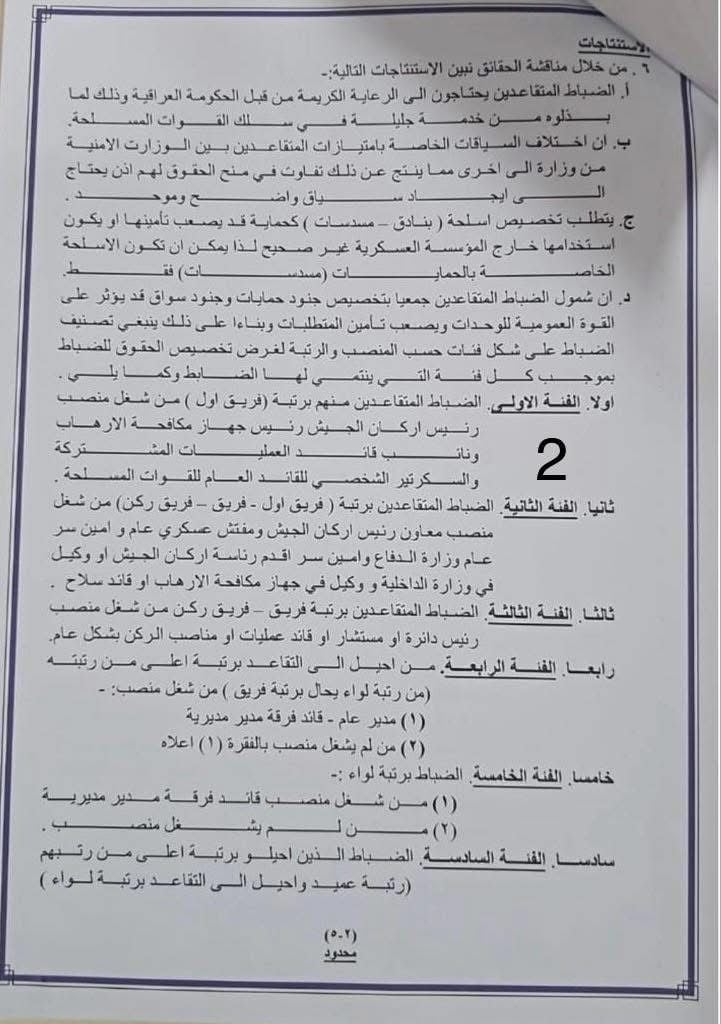 الاستنتاجات
٦. من خلال مناقشة الحقائق نبين الاستنتاجات التالية:-
أ. الضباط المتقاعدين يحتاجون الى الرعاية الكريمة من قبل الحكومة العراقية وذلك لما
بذلوه من خدمة جليلة في سلك القوات المسلحة.
ب. ان اختلاف السياقات الخاصة بامتيازات المتقاعدين بين الوزارت الامنية
من وزارة الى اخرى مما ينتج عن ذلك تفاوت في منح الحقوق لهم اذن يحتاج
الى ايجاد سياق واضح وموحد .
ج. يتطلب تخصيص اسلحة ( بنادق – مسدسات ) كحماية قد يصعب تأمينها او يكون
استخدامها خارج المؤسسة العسكرية غير صحيح لذا يمكن ان تكون الاسلحة
الخاصة بالحمايات (مسدسات) فقط.
د. ان شمول الضباط المتقاعدين جمعيا بتخصيص جنود حمايات وجنود سواق قد يؤثر على
القوة العمومية للوحدات ويصعب تأمين المتطلبات وبناءا على ذلك ينبغي تصنيف
الضباط على شكل فئات حسب المنصب والرتبة لغرض تخصيص الحقوق للضباط
بموجب كل فئة التي ينتمي لها الضابط وكما يلي .
اولا. الفئة الاولى. الضباط المتقاعدين منهم برتبة (فريق اول ) من شغل منصب
رئيس اركان الجيش رئيس جهاز مكافحة الارهاب
ونائب قائد العمليات المشتركة
والسكرتير الشخصي للقائد العام للقوات المسلحة .
2
ثانيا. الفئة الثانية. الضباط المتقاعدين برتبة ( فريق اول - فريق – فريق ركن) من شغل
منصب معاون رئيس اركان الجيش ومفتش عسكري عام و امين سر
عام وزارة الدفاع وامين سر اقدم رئاسة اركان الجيش او وكيل
في وزارة الداخلية و وكيل في جهاز مكافحة الارهاب او قائد سلاح .
ثالثا. الفئة الثالثة. الضباط المتقاعدين برتبة فريق – فريق ركن من شغل منصب
رئيس دائرة او مستشار او قائد عمليات او مناصب الركن بشكل عام.
رابعا. الفئة الرابعة. من احيل الى التقاعد برتبة اعلى من رتبته
(من رتبة لواء يحال برتبة فريق ) من شغل منصب: -
(١) مدير عام - قائد فرقة مدير مديرية
(٢) من لم يشغل منصب بالفقرة (١) اعلاه
خامسا. الفئة الخامسة. الضباط برتبة لواء :-
(١) من شغل منصب قائد فرقة مدير مديرية
(٢) من لم يشغل منصب .
سادسا. الفئة السادسة. الضباط الذين احيلو برتبة اعلى من رتبهم
(رتبة عميد واحيل الى التقاعد برتبة لواء )
(٢-٥)
محدود